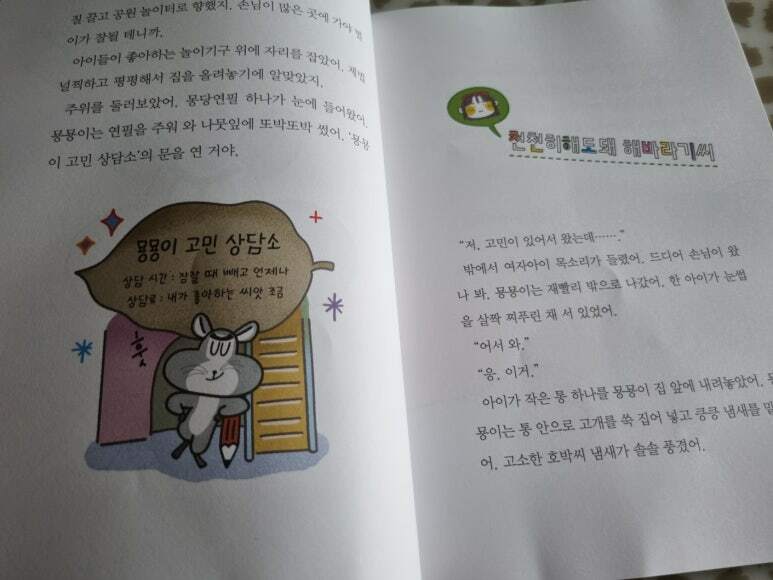 질 끌고 공원 놀이터로 향했지. 손님이 많은 곳에 가야
이가 잘될 테니까.
아이들이 좋아하는 놀이기구 위에 자리를 잡았어. 제법
널찍하고 평평해서 짐을 올려놓기에 알맞았지.
주위를 둘러보았어. 몽당연필 하나가 눈에 들어왔어.
묭묭이는 연필을 주워 와 나뭇잎에 또박또박 썼어. '묭묭
이 고민 상담소'의 문을 연 거야.
묭묭이 고민 상담소
상담 시간 : 잠잘 때 빼고 언제나
상담료 : 내가 좋아하는 씨앗 조금
흐뭇
천천히해도돼 해바라기씨
“저, 고민이 있어서 왔는데…….”
밖에서 여자아이 목소리가 들렸어. 드디어 손님이 왔
나 봐. 묭묭이는 재빨리 밖으로 나갔어. 한 아이가 눈썹
을 살짝 찌푸린 채 서 있었어.
“어서 와.”
“응. 이거.”
아이가 작은 통 하나를 묭묭이 집 앞에 내려놓았어.
묭이는 통 안으로 고개를 쑥 집어 넣고 킁킁 냄새를 맡
어. 고소한 호박씨 냄새가 솔솔 풍겼어.